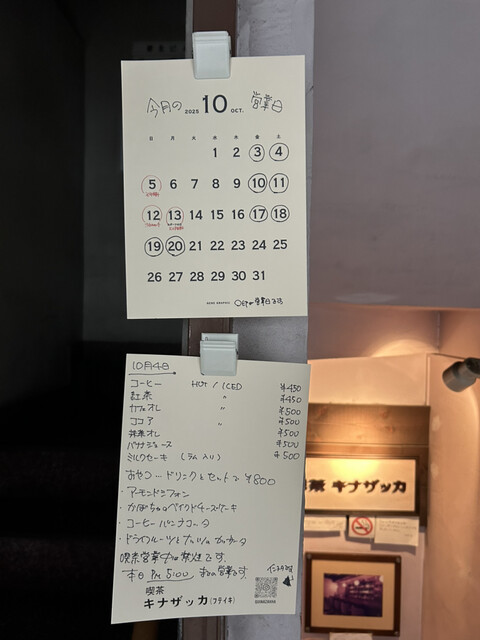 今月の 2025 10 OCT. 営業日
日 月 火 水 木 金 土
1 2 3 4
5 6 7 8 9 10 11
12 13 14 15 16 17 18
19 20 21 22 23 24 25
26 27 28 29 30 31
〇印が営業日です
10月4日
コーヒー HOT / ICED ¥450
紅茶 〃 ¥450
カフェオレ 〃 ¥500
ココア 〃 ¥500
抹茶オレ ¥500
バナナジュース ¥500
ミルクセーキ (ラム入り) ¥500
おやつ…ドリンクとセットで¥800
・アーモンドシフォン
・かぼちゃのベイクドチーズケーキ
・コーヒーパンナコッタ
・ドライフルーツとナッツの
喫茶営業中は禁煙です。
本日 PM 5:00 までの営業です。
インスタグラム
喫茶
キナザッカ(フテイキ)
茶 キナザッカ